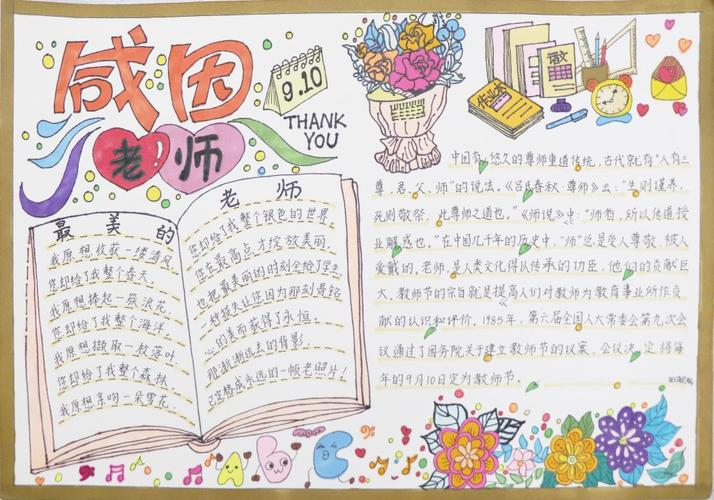 感恩
老师
9.10
THANK
YOU
作业本
最美的
我原想收获一缕清风
您却给了我整个春天.
我原想捧起一簇浪花,
您却给了我整个海洋.
我原想撷取一枚落叶
您却给了我整个森林.
我原想亲吻一朵雪花.
老师
您却给了我整个银色的世界
您在最高点才绽放美丽.
也把最美丽的时刻全给了学生
一种损失让您因为那刻骨铭
心的美而获得了永恒.
渐渐远去的背影
已定格成永远的一幅老照片!
中国有悠久的尊师重道传统,古代就有"人有三
尊,君、父、师"的说法。《吕氏春秋·尊师》云:"生则谨养,
死则敬祭,此尊师之道也。"《师说》中:"师者,所以传道授
业解惑也。"在中国几千年的历史中,"师"总是受人尊敬,被人
爱戴的。老师,是人类文化得以传承的功臣,他们的贡献巨
大。教师节的宗旨就是提高人们对教师为教育事业所作贡
献的认识和评价。1985年,第六届全国人大常委会第九次会
议通过了国务院关于建立教师节的议案,会议决定将每
年的9月10日定为教师节。
A B C